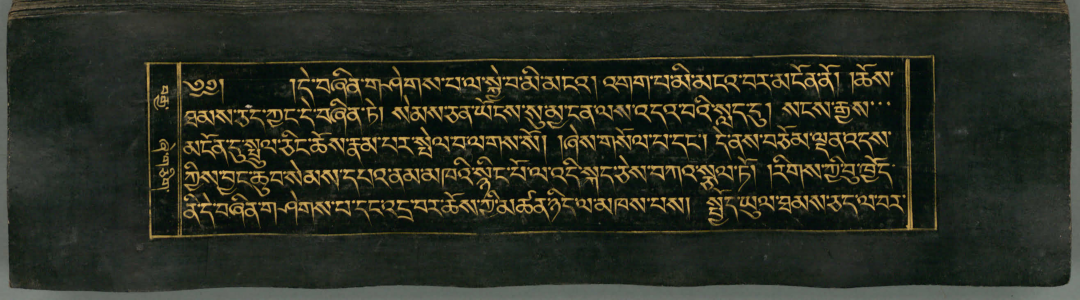 ༄༅། །དེ་བཞིན་གཤེགས་པ་ལ་སྐྱེ་བ་མི་མངའ། འགག་པ་མི་མངའ་བར་མངོན་ནོ། །ཆོས་
ཐམས་ཅད་ཀྱང་དེ་བཞིན་ཏེ། སེམས་ཅན་ཡོངས་སུ་མྱ་ངན་ལས་འདའ་བའི་སླད་དུ། སངས་རྒྱས་
མངོན་དུ་སྤྲུལ་ཅིང་ཆོས་རྣམ་པར་སྤེལ་བ་ལགས་སོ། །ཞེས་གསོལ་པ་དང་། དེ་ནས་བཅོམ་ལྡན་འདས་
ཀྱིས་བྱང་ཆུབ་སེམས་དཔའ་ནམ་མཁའི་སྙིང་པོ་ལ་འདི་སྐད་ཅེས་བཀའ་སྩལ་ཏོ། །རིགས་ཀྱི་བུ་ཁྱོད་
ནི་དེ་བཞིན་གཤེགས་པ་དང་འདྲ་བར་ཆོས་ཀྱི་མཚན་ཉིད་ལ་མཁས་པས། སྤྱོད་ཡུལ་ཐམས་ཅད་ལ་བར་